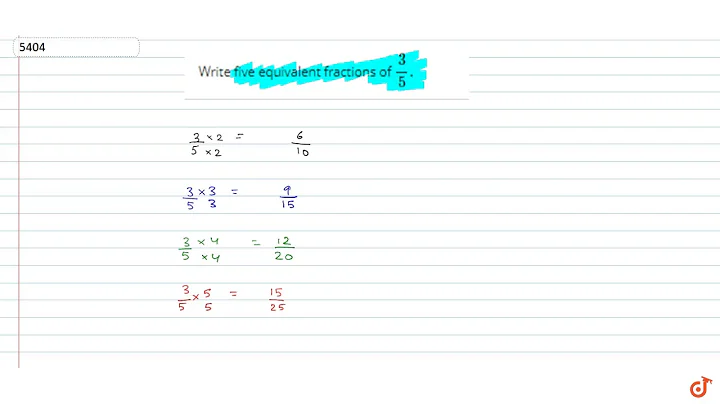 5404
Write five equivalent fractions of 3/5 .
3/5 ×2/×2 = 6/10
3/5 × 3/3 = 9/15
3/5 ×4/×4 = 12/20
3/5 × 5/5 = 15/25